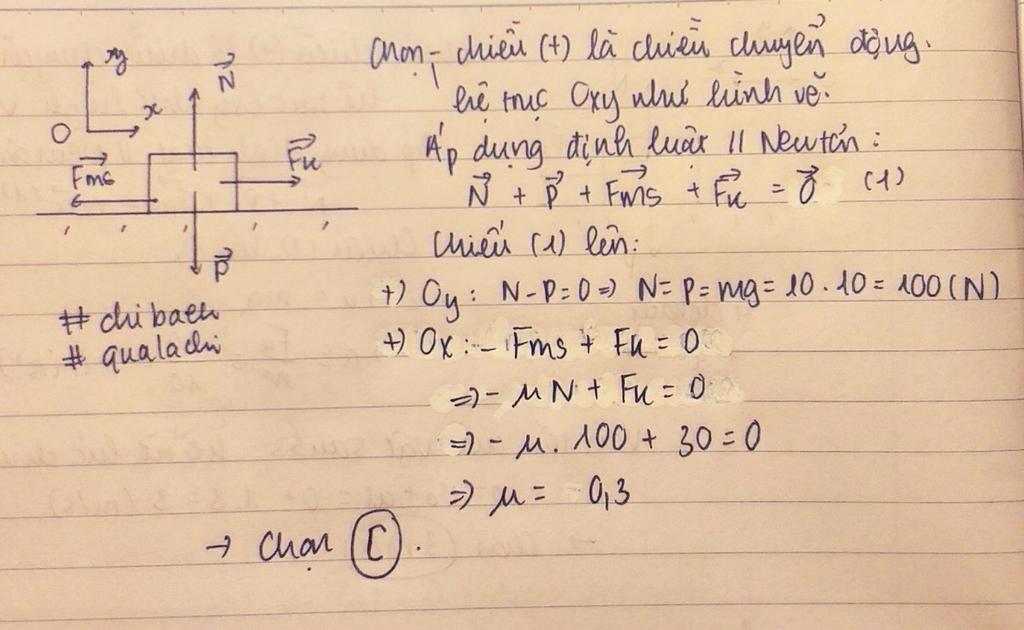 y
N⃗
x
O
F⃗ms
F⃗k
P⃗
# chibach
# qualachi
Chọn - chiều (+) là chiều chuyển động.
hệ trục Oxy như hình vẽ.
Áp dụng định luật II Newtơn:
N⃗ + P⃗ + F⃗ms + F⃗k = 0⃗ (1)
Chiếu (1) lên:
+) Oy: N-P=0 => N=P=mg=10.10=100(N)
+) Ox: - Fms + Fk = 0
=> - μN + Fk = 0
=> - μ.100 + 30 = 0
=> μ = 0,3
→ Chọn C.